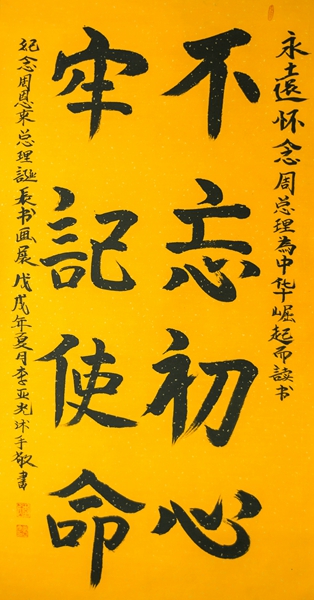 永遠怀念周总理為中华崛起而读书
不忘初心
牢記使命
纪念周恩来总理誕辰书画展 戊戌年夏月李亚光沐手敬書